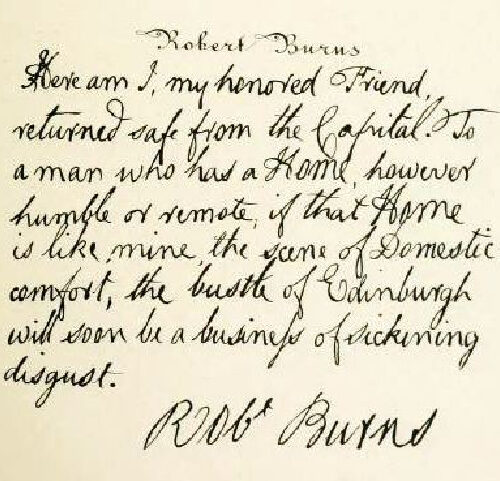 Robert Burns
Here am I, my honored Friend,
returned safe from the Capital. To
a man who has a Home, however
humble or remote, if that Home
is like mine, the scene of Domestic
comfort, the bustle of Edinburgh
will soon be a busineſs of sickening
disgust.
Robt Burns